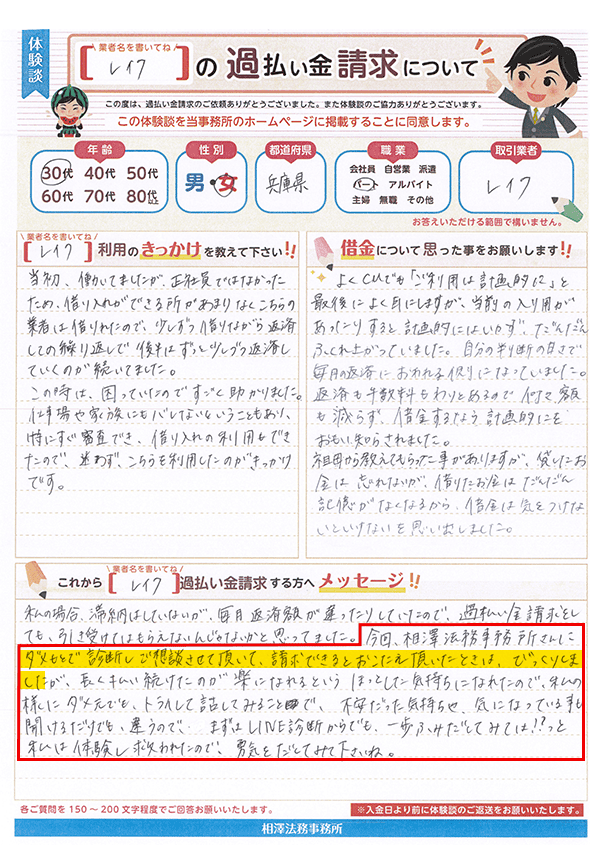 体験談
業者名を書いてね
[レイク]の過払い金請求について
この度は、過払い金請求のご依頼ありがとうございました。また体験談のご協力ありがとうございます。
この体験談を当事務所のホームページに掲載することに同意します。
年齢
30代 40代 50代
60代 70代 80代以上
性別
男・女
都道府県
兵庫県
職業
会社員 自営業 派遣
パート アルバイト
主婦 無職 その他
取引業者
レイク
お答えいただける範囲で構いません。
業者名を書いてね
[レイク]利用のきっかけを教えて下さい!!
当初、働いてましたが、正社員ではなかった
ため、借り入れができる所があまりなくこちらの
業者は借りれたので、少しずつ借りながら返済
しての繰り返しで後半はずっと少しづつ返済し
ていくのが続いてました。
この時は、困っていたのですごく助かりました。
仕事場や家族にもバレないということもあり、
特にすぐ審査でき、借り入れの利用もでき
たので、迷わず、こちらを利用したのがきっかけ
です。
借金について思った事をお願いします!!
よくCMでも「ご利用は計画的に」と
最後によく耳にしますが、当前の入り用が
あったりすると計画的にはいかず、だんだん
ふくれ上がっていました。自分の判断の甘さで
毎月の返済におわれる便りになっていました。
返済も手数料もわりとあるので 何で 額
も減らず、借金するなら計画的にを
おもい知らされました。
祖母から教えてもらった事がありますが、貸したお
金は忘れないが、借りたお金はだんだん
記憶がなくなるから、借金は気をつけな
いといけないを思い出しました。
業者名を書いてね
これから[レイク]過払い金請求する方へメッセージ!!
私の場合、滞納はしていないが、毎月返済額が違ったりしていたので、過払い金請求とし
ても、引き受けてはもらえないんじゃないかと思ってました。今回、相澤法務事務所さんに
ダメもとで診断しご想談させて頂いて、請求できるとおこたえ頂いたときは、びっくりしま
したが、長く払い続けたのが楽になれるというほっとした気持ちになれたので、私の
様にダメ元でも、トライして話してみることで、不安だった気持ちや、気になっている事も
聞けるだけでも、違うので… まずはLINE診断からでも、一歩ふみだしてみては!?っと
私は体験し救われたので、勇気をだしてみて下さいね。
各ご質問を150〜200文字程度でご回答お願いいたします。
※入金日より前に体験談のご返送をお願いいたします。
相澤法務事務所